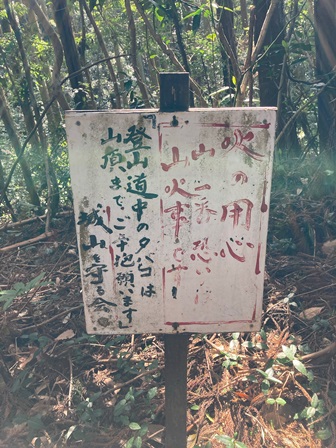 火の用心
山で一番恐いのは
山火事です!
「登山道中のタバコは
山頂までご辛抱願います」
城山を守る会